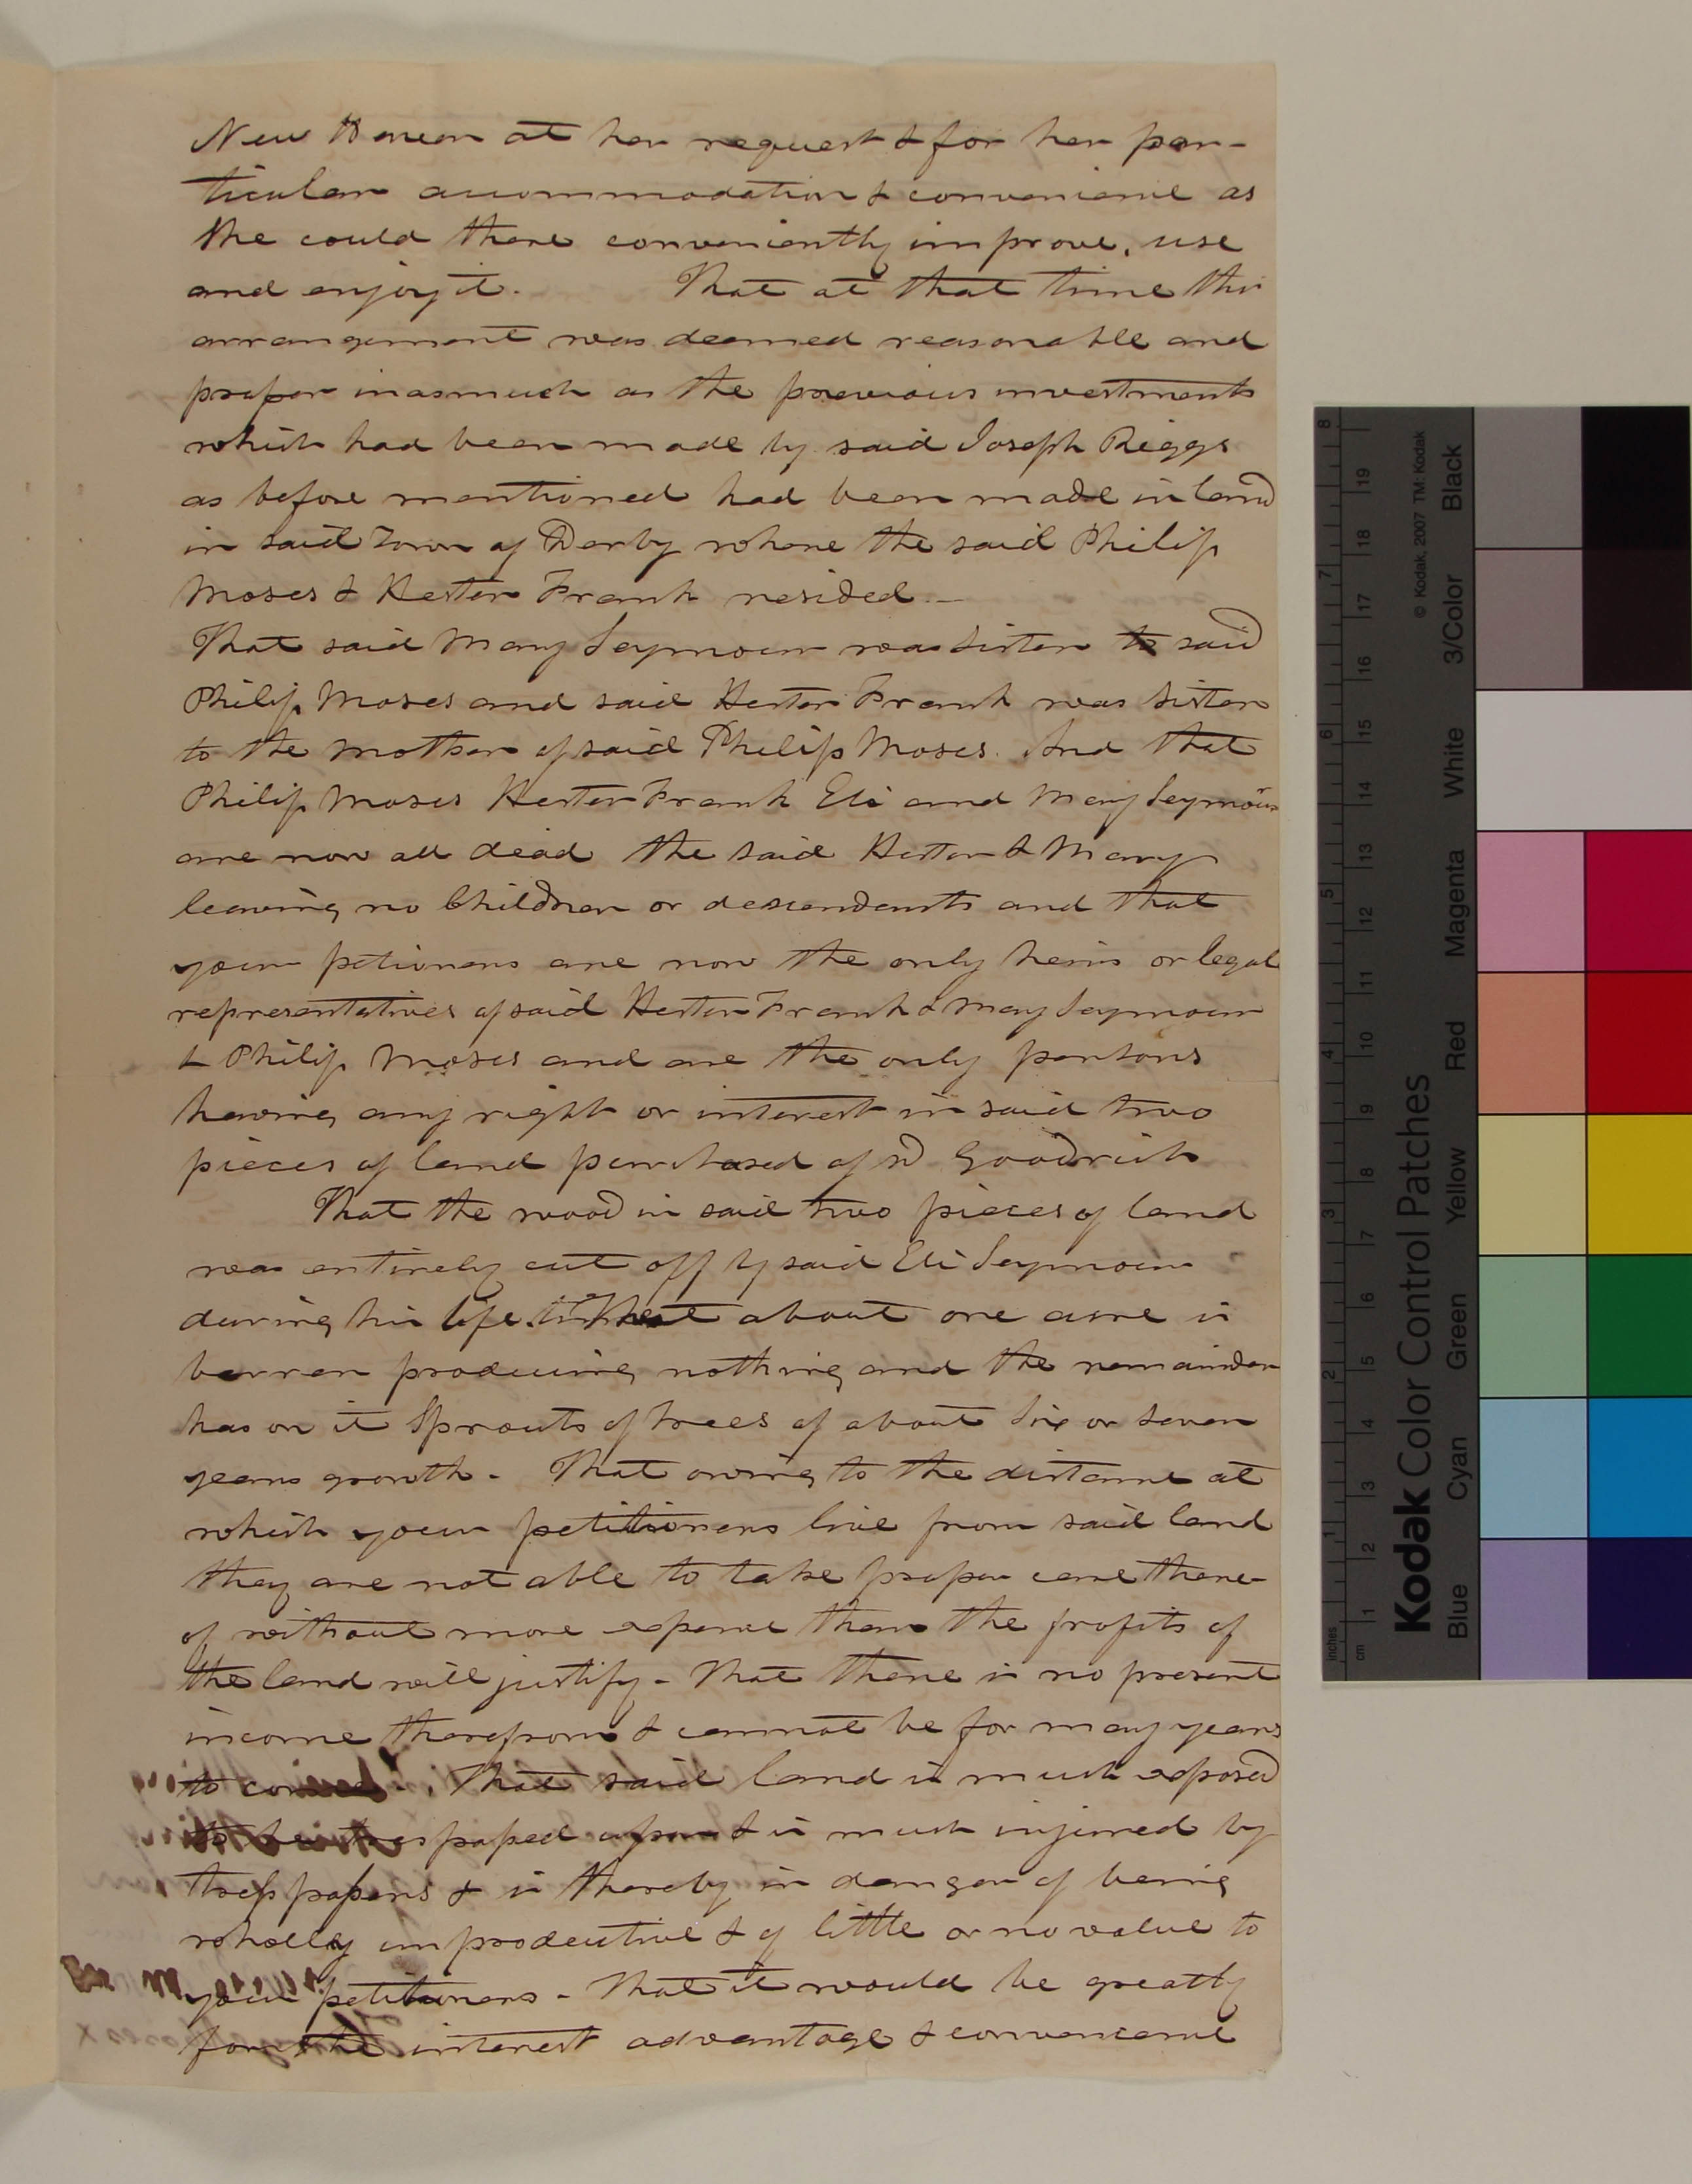 New Haven at her request & for her par-
ticular accommodation & convenience as
she could there conveniently improve, use
and enjoy it. That at that time this
arrangement was deemed reasonable and
proper inasmuch as the previous investments
which had been made by said Joseph Riggs
as before mentioned had been made in land
in said Town of Derby where the said Philip
Moses & Hester Frank resided. —
That said Mary Seymour was sister to said
Philip Moses and said Hester Frank was sister
to the mother of said Philip Moses. And that
Philip Moses Hester Frank Eli and Mary Seymour
are now all dead the said Hester & Mary
leaving no Children or descendants and that
your petioners are now the only heirs or legal
representatives of said Hester Frank & Mary Seymour
& Philip Moses and are the only persons
having any right or interest in said two
pieces of land purchased of sd Goodrich
That the wood in said two pieces of land
was entirely cut off by said Eli Seymour
during his life. that about one acre is
barren producing nothing and the remainder
has on it Sprouts of trees of about Six or Seven
years growth - That owing to the distance at
which your petitioners live from said land
they are not able to take proper care there-
of without more expence than the profits of
the land will justify - That there is no present
income therefrom & cannot be for many years
to come. That said land is much exposed
to be tresspassed upon & is much injured by
tresspassers & is thereby in danger of being
wholly unproductive & of little or no value to
your petitioners - That it would be greatly
for the interest advantage & convenience
Kodak Color Control Patches
© Kodak, 2007 TM: Kodak
Blue Cyan Green Yellow Red Magenta White 3/Color Black
inches 1 2 3 4 5 6 7 8
cm 1 2 3 4 5 6 7 8 9 10 11 12 13 14 15 16 17 18 19